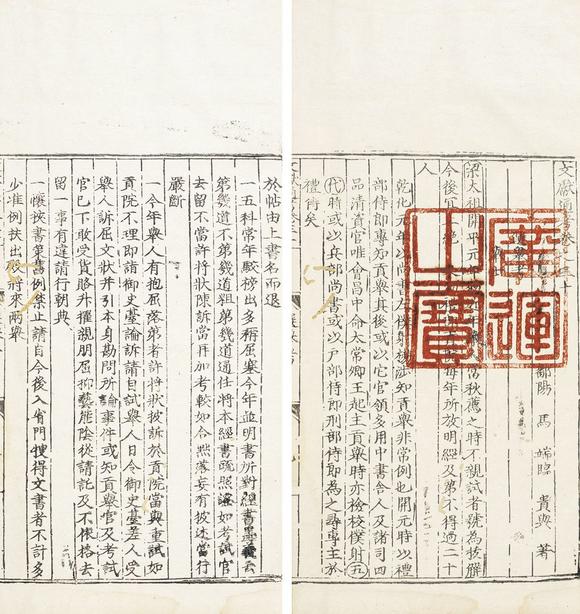 文獻通考卷之三十
鄱陽 馬 端臨 貴與 著
梁太祖開平元年 常秋薦之時不親試者號為拔解
今後宜絕 每年所放明經及第不得過二十
人
乾化元年以尚書左僕射楊涉知貢舉非常例也開元時以禮
部侍郎專知貢舉其後或以它官領多用中書舍人及諸司四
品清資官唯會昌中命太常卿王起主貢舉時亦檢校僕射五
代時或以兵部尚書或以戶部侍郎刑部侍郎為之專主於
禮侍矣
廣運
之寶
於帖由上書名而退
一五科常年駁榜出多稱屈塞今年並明書所對經書墨義云
第幾道不第幾道粗第幾道通任將本經書疏照證如考試官
去留不當許將狀陳訴當再加考較如合黜落妄有披述當行
嚴斷
一今年舉人有抱屈落第者許將狀披訴於貢院當與重試如
貢院不理即詣御史臺論訴請自試舉人日令御史臺差人受
舉人訴屈文狀并引本身勘問所論事件或知貢舉官及考試
官已下敢受貨賂升擢親朋屈抑藝能陰從請託及不依格去
留一事有違請行朝典
一懷挾書策舊例禁止請自今後入省門搜得文書者不計多
少准例扶出殿將來兩舉